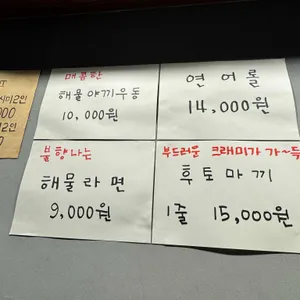 매콤한
해물야끼우동
10,000원
연어롤
14,000원
불향나는
해물라면
9,000원
부드러운 크래미가 가~득
후토마끼
1줄 15,000원